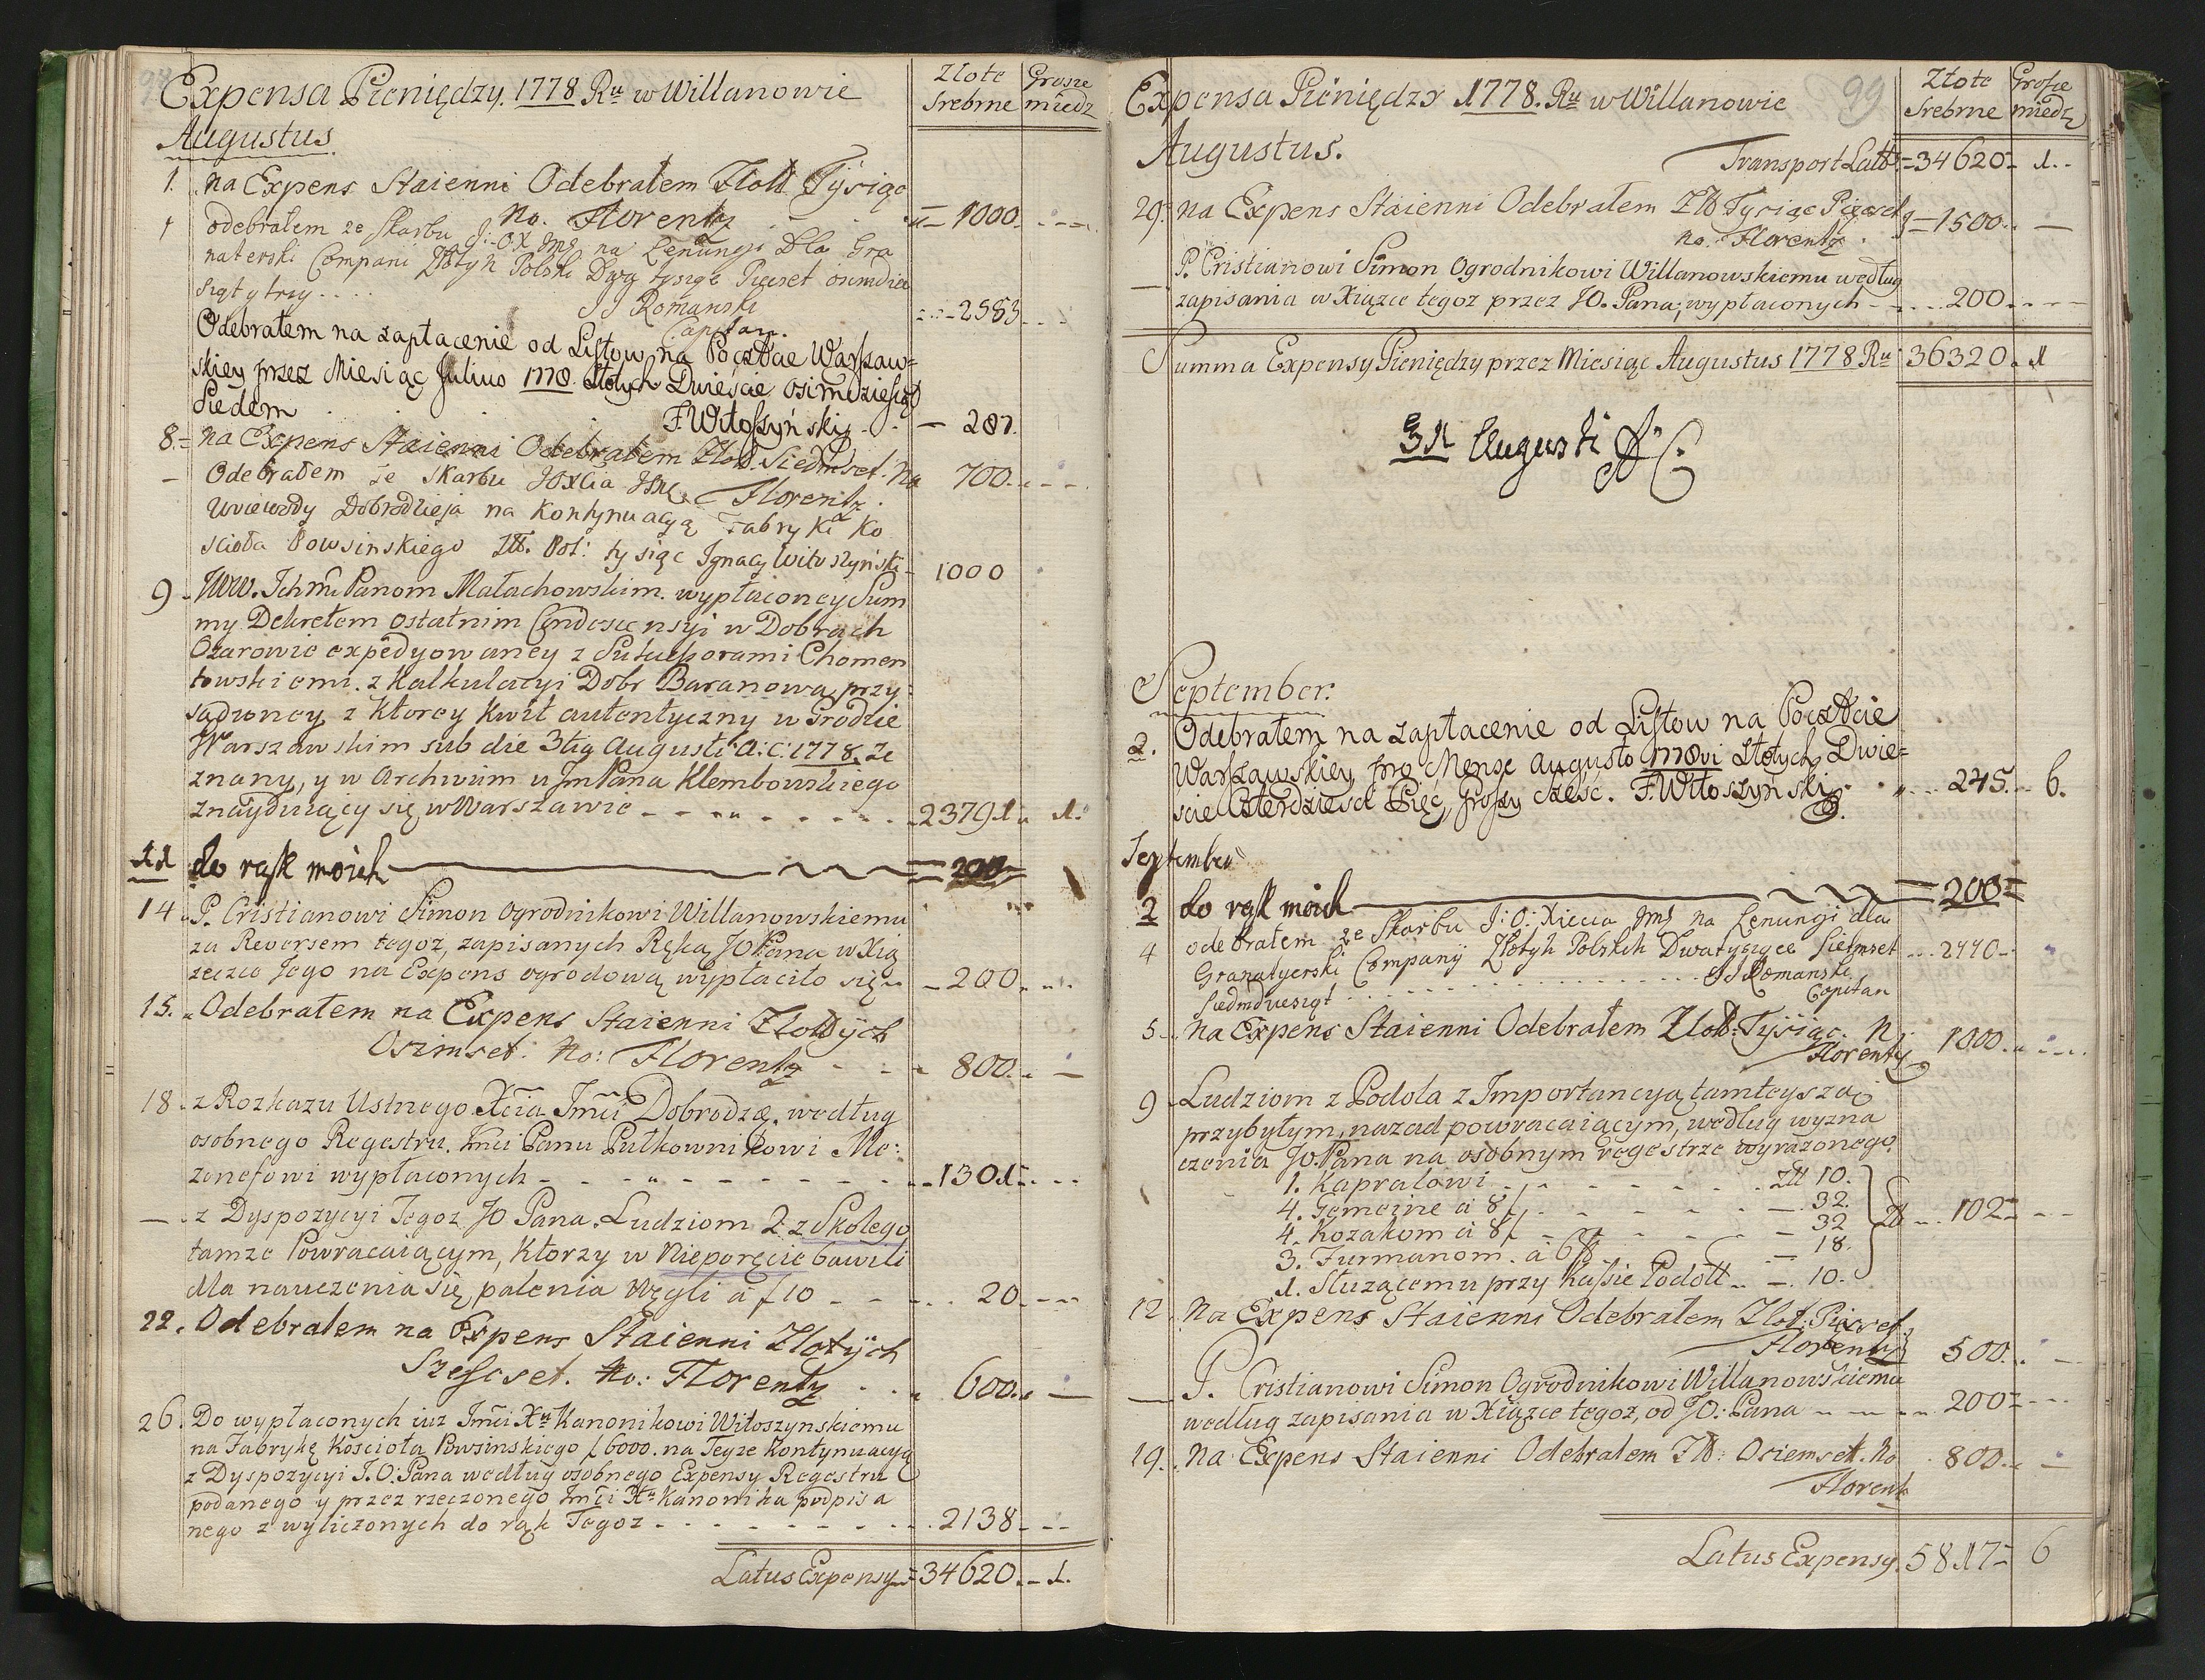 98
Expensa Pieniędzy. 1778 Ru w Willanowie
Złote Srebrne
Grosze miedz
Augustus
1. na Expens Staienni Odebrałem Złott Tysiąc
No. Florentz = 1000.
1 odebrałem ze Skarbu J: O X Jmś na Lenungi Dla Gra
naterski Compani Złotyh Polski Dwa tysiące Piecset osimdzie
siąt y trzy....
JJ Romanski 2583
Capitan.
Odebrałem na zapłacenie od Listow na Poczcie Warszaw=
skiey przez Miesiąc Julius 1778. Złotych Dwieście osimdziesiąt
Siedem
F. Witoszyński - 287.
8.= na Expens Staienni Odebrałem Złott. Siedmset. No
Florentz. 700.
- Odebrałem ze Skarbu JOXcia Jmci
Woiewody Dobrodzieja na Kontynuacyą Fabryki Ko
scioła Powsinskiego Złł. Pol: tysiąc Ignacy Witoszyński - 1000
9 - WW. Ichmć Panom Małachowskim. wypłaconey Sum
my Dekretem ostatnim Condescensyi w Dobrach
Ozarowie expedyowaney z Sukcessorami Chomen
towskiemi. z Kalkulacyi Dobr Baranowa, przy=
sądzoney, z ktorey Kwit autentyczny w Grodzie
Warszawskim sub die 3tia Augusti a: c: 1778. Ze
znany, y w Archivum u JmPana Klembowskiego
znayduiący się w Warszawie - 23791 1.
11 do rąk moich = 200
14. P. Cristianowi Simon Ogrodnikowi Willanowskiemu
za Reversem tegoż, zapisanych Ręką JO Pana w Xią
żeczce Jego na Expens ogrodową wypłaciło się - 200
15. Odebrałem na Expens Staienni Zlottych
Osimset. No: Florentz 800.
18. z Rozkazu Ustnego Xcia Jmći Dobrodzą. według
osobnego Regestru. Jmci Panu Pułkownikowi Me:
zonefowi wypłaconych - 1301
- z Dyspozycyi Tegoż JO Pana. Ludziom 2 z Skolego
tamże Powracaiącym, Ktorzy w Nieporęcie bawili
dla nauczenia się palenia Węgli a f 10 - 20
22. Odebrałem na Expens Staienni Zlotych
Szescset. No: Florentz 600.
26. Do wypłaconych iuż Jmći Xu Kanonikowi Witoszynskiemu
na Fabrykę Kościoła Powsinskiego f 6000. na Teyże Kontynuacyą
z Dyspozycyi J. O: Pana według osobnego Expensy Regestru
podanego y przez rzeczonego Jmći Xu Kanonika podpisa
nego z wyliczonych do rąk Tegoż - 2138
Latus Expensy = 34620. - 1.
99
Expensa Pieniędzy 1778. Ru w Willanowie
Złote Srebrne
Grosze miedz
Augustus.
Transport Latt: = 34620 - 1.
29. na Expens Staienni Odebrałem Złt Tysiąc Piecset
No. Florentz. 1500.
- P. Cristianowi Simon Ogrodnikowi Willanowskiemu według
zapisania w Xiążce tegoż przez JO. Pana, wypłaconych - 200
Summa Expensy Pieniędzy przez Miesiąc Augustus 1778 Ru 36320. 1
31 Augusti AC
September.
2. Odebrałem na zapłacenie od Listow na Poczcie
Warszawskiey pro Mense Augusto 1778vi Złotych Dwie=
scie Czterdziesci Pięć, groszy sześć. F. Witoszyński 245. - 6.
September
2 do rąk moich = 200 =
4 odebrałem ze Skarbu J: O: Xiecia Jmś na Lenungi dla
Granatyerski Companÿ Złotyh Polskih Dwatysiące Siedmset
Siedmdziesiąt JJ Romanski 2770
Capitan
5. na Expens Staienni Odebrałem Zlott: Tysiąc. N
Florentz 1000.
9 Ludziom z Podola z Importancyą tamteysza
przybyłym, nazad powracaiącym, według wyzna
czenia JO. Pana na osobnym regestrze wyrażonego.
1. Kapralowi - Złł 10.
4. Gemeine a 8 f - 32.
4. Kozakom a 8 f - 32
3. Furmanom a 6 f - 18.
1. Służącemu przy Kassie Podoll - 10.
102
12. Na Expens Staienni Odebrałem Zlot: Piecset
Florentz 500.
- P. Cristianowi Simon Ogrodnikowi Willanowskiemu
według zapisania w Xiążce tegoż, od JO: Pana - 200
19. Na Expens Staienni Odebrałem Złt: Osiemset. No
Florentz 800.
Latus Expensy. 5817 = 6